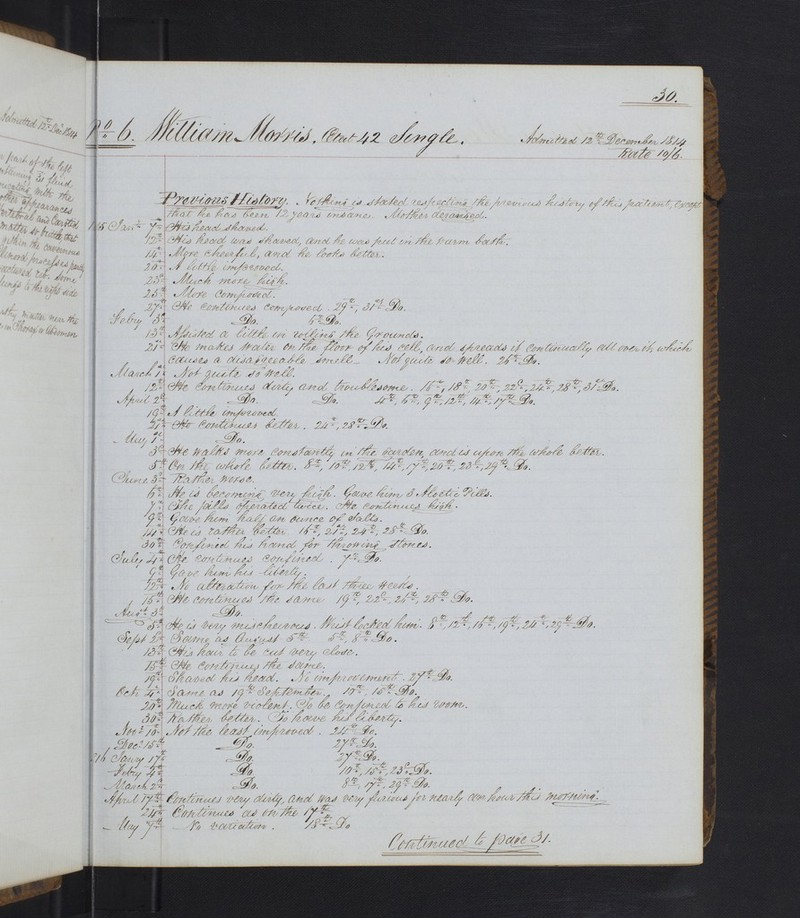 30.
No 6. William Morris. Aet 42 Single. Admitted 12th December 1814
Rate 10/6.
Previous History. Nothing is stated respecting the previous history of this patient, except
that he has been 12 years insane. Mother deranged.
Jany 7th His head shaved.
12th His head was shaved, and he was put in the warm bath.
14th More cheerful, and he looks better.
20th A little improved.
23d Much more high.
25th More composed.
27th He continues composed. 29th, 31st Do.
Feby 3d Do. 6th Do.
13th Assisted a little in rolling the Grounds.
21st He makes water on the floor of his cell, and spreads it continually all over it, which
causes a disagreeable smell. Not quite so well. 26th Do.
March 1st Not quite so well.
12th He continues dirty and troublesome. 15th, 18th, 20th, 22d, 24th, 28th, 31st Do.
April 2d Do. Do. 4th, 6th, 9th, 12th, 14th, 17th Do.
19th A little improved
21st He continues better. 24th, 28th Do.
May 1st Do.
3d He walks more constantly in the garden, and is upon the whole better.
5th On the whole better. 8th, 10th, 12th, 14th, 17th, 20th, 23d, 29th Do.
June 3d Rather worse.
6th He is becoming very high. Gave him 3 Aloetic Pills.
7th The pills operated twice. He continues high.
9th Gave him half an ounce of Salts.
14th He is rather better. 16th, 21st, 24th, 28th Do.
30th Confined his hand, for throwing stones.
July 4th He continues confined. 7th Do.
9th Gave him his liberty.
12th No alteration for the last three weeks.
16th He continues the same. 19th, 22d, 24th, 28th Do.
Augt 3d Do.
5th He is very mischievous. Wrist locked him. 8th, 12th, 16th, 19th, 24th, 29th Do.
Sept 2d Same as August 5th. 5th, 8th Do.
13th His hair to be cut very close.
15th He continues the same.
19th Shaved his head. No improvement. 27th Do.
Octr 4th Same as 19th September. 10th, 16th Do.
20th Much more violent. To be confined to his room.
30th Rather better. To have his liberty.
Novr 10th Not the least improved. 24th Do.
Decr 15th Do. 27th Do.
Jany 17th Do. 27th Do.
Feby 4th Do. 10th, 15th, 23d Do.
March 2d Do. 8th, 17th, 29th Do.
April 17th Continues very dirty, and was very furious for nearly an hour this morning.
24th Continues as on the 17th
May 7th No variation. 18th Do
Continued to page 31.